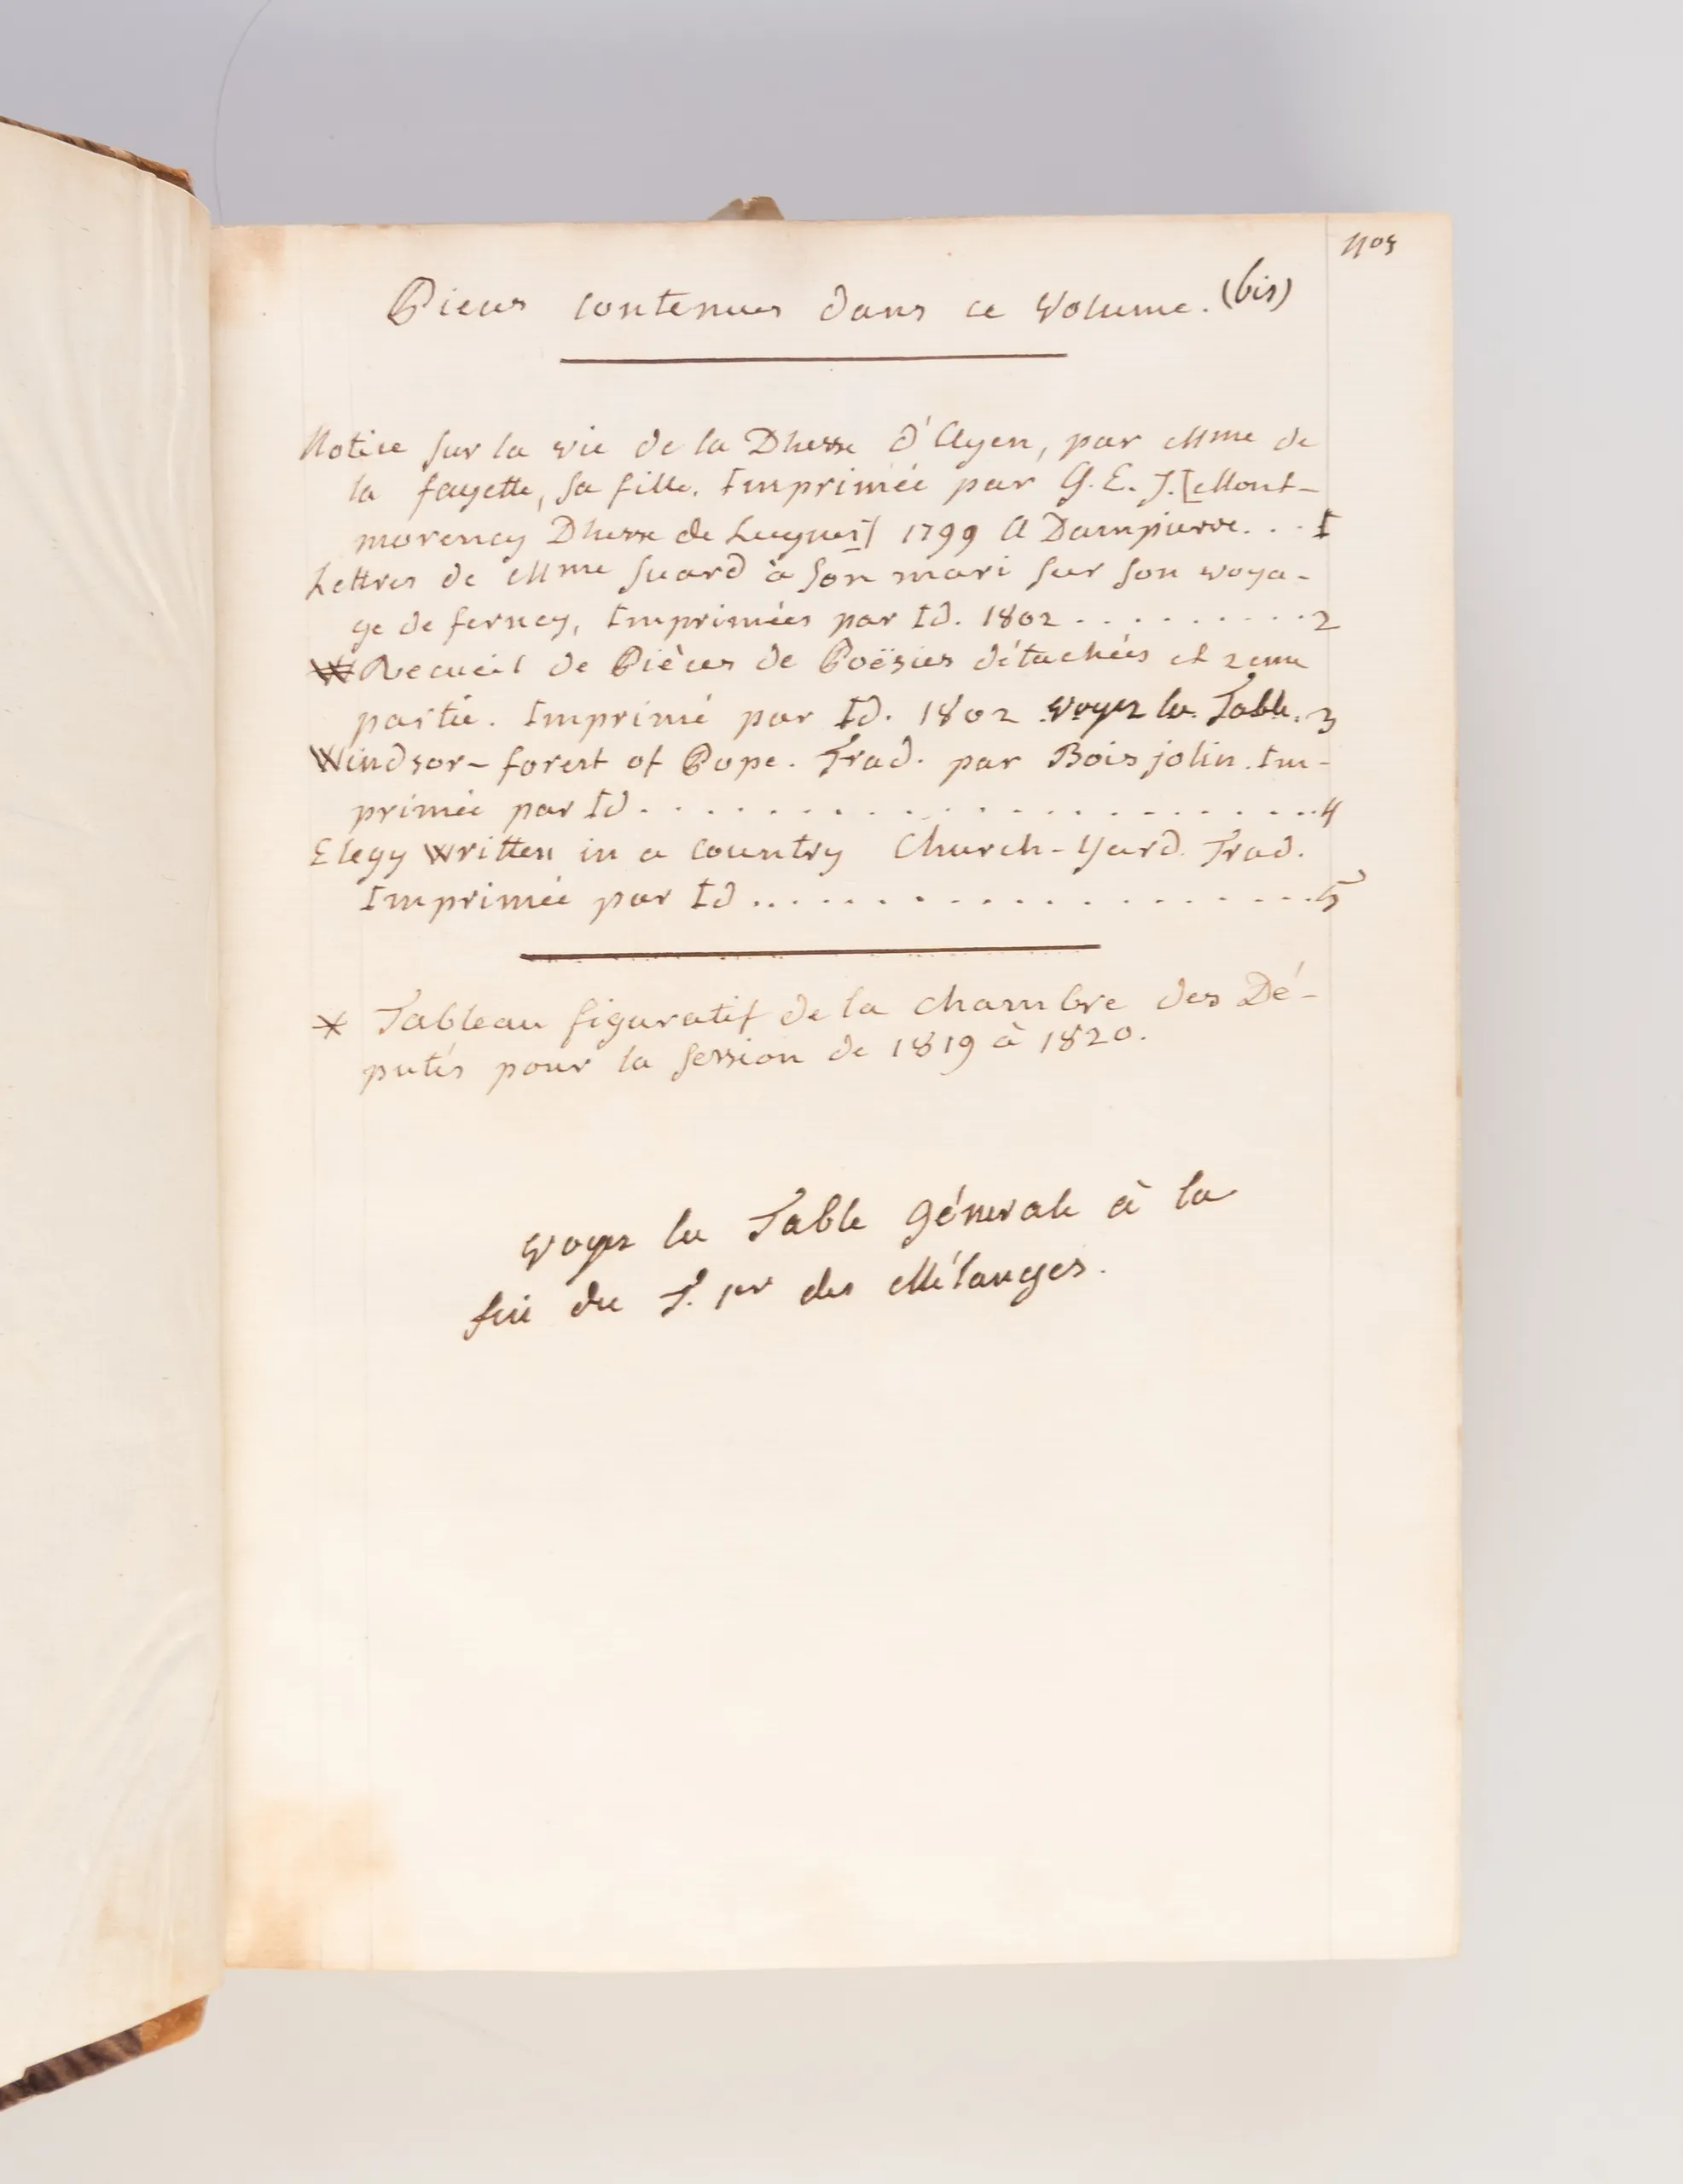 1105
Pieces contenues dans ce Volume. (bis)
Notice sur la vie de la Dhesse d'Ayen, par Mme de
la fayette, sa fille. Imprimée par G. E. J. [Mont-
morency Dhesse de Luynes] 1799 A Dampierre. . . 1
Lettres de Mme Suard à son mari sur son voya-
ge de ferney, Imprimées par Id. 1802 . . . . . . . . . . 2
Recueil de Pièces de Poësies détachées et 2eme
partie. Imprimé par Id. 1802 voyez la Table. 3
Windsor-forest of Pope. Trad. par Boisjolin. Im-
primée par Id . . . . . . . . . . . . . . . . . . . . 4
Elegy Written in a Country Church-Yard. Trad.
Imprimée par Id . . . . . . . . . . . . . . . . . . 5
* Tableau figuratif de la chambre des Dé-
putés pour la session de 1819 à 1820.
voyez la Table Génerale à la
fin du T. 1er des Mélanges.